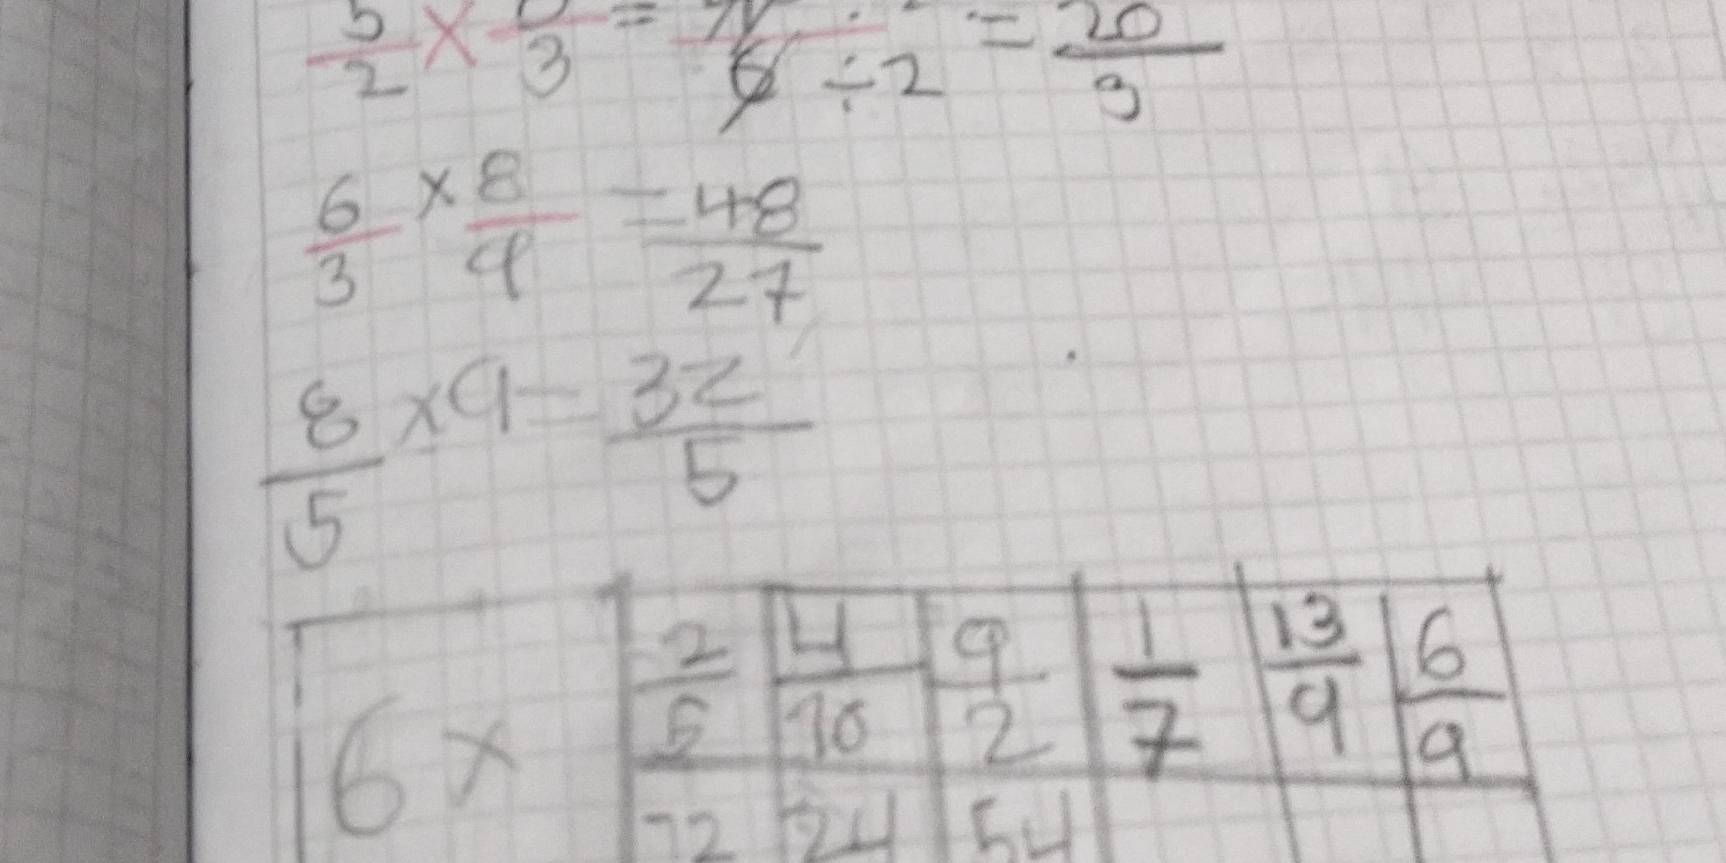 5/2 × /3 = /6 ÷ 2 = 20/3
6/3 × 8/9 = 48/27
8/5 × 9 = 32/5
6 × 2/5 4/10 9/2 1/7 13/9 6/9
12 24 54